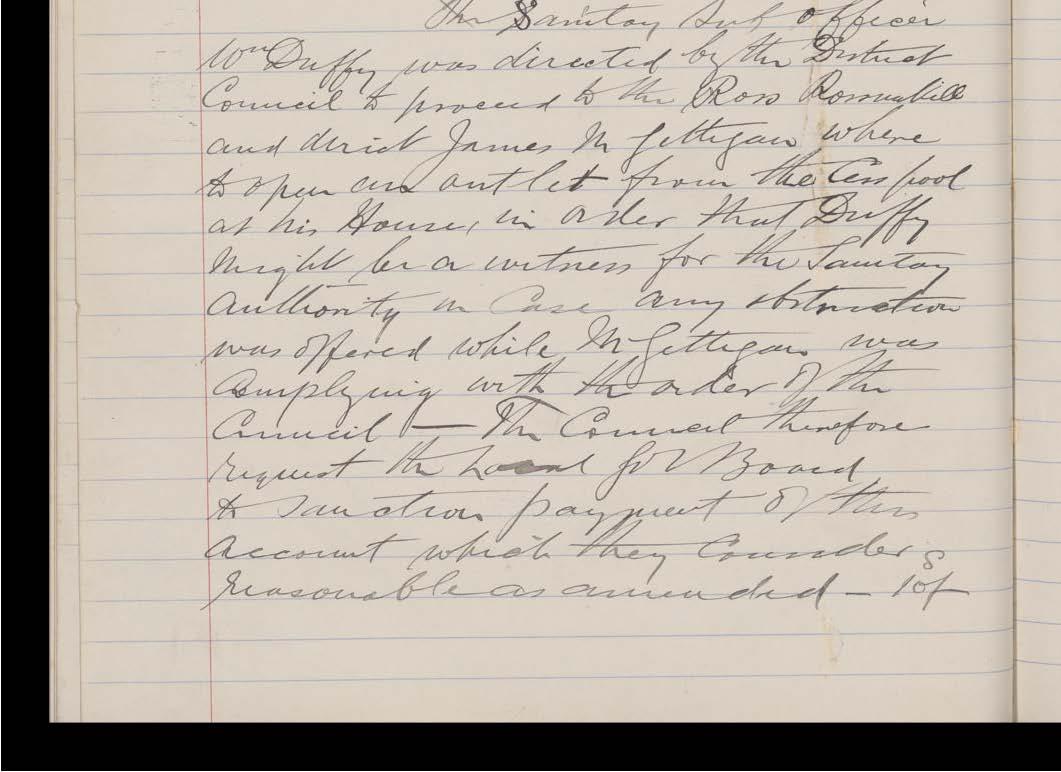 The Sanitary Sub Officer
Wm Duffy was directed by the District
Council to proceed to the Ross Rossnakill
and direct James McGettigan where
to open an outlet from the Cess pool
at his House, in order that Duffy
might be a witness for the Sanitary
Authority in Case any obstruction
was offered while McGettigan was
Complying with the order of the
Council — The Council therefore
request the Local Gov Board
to sanction payment of this
account which they consider
reasonable as amended — 10s/-